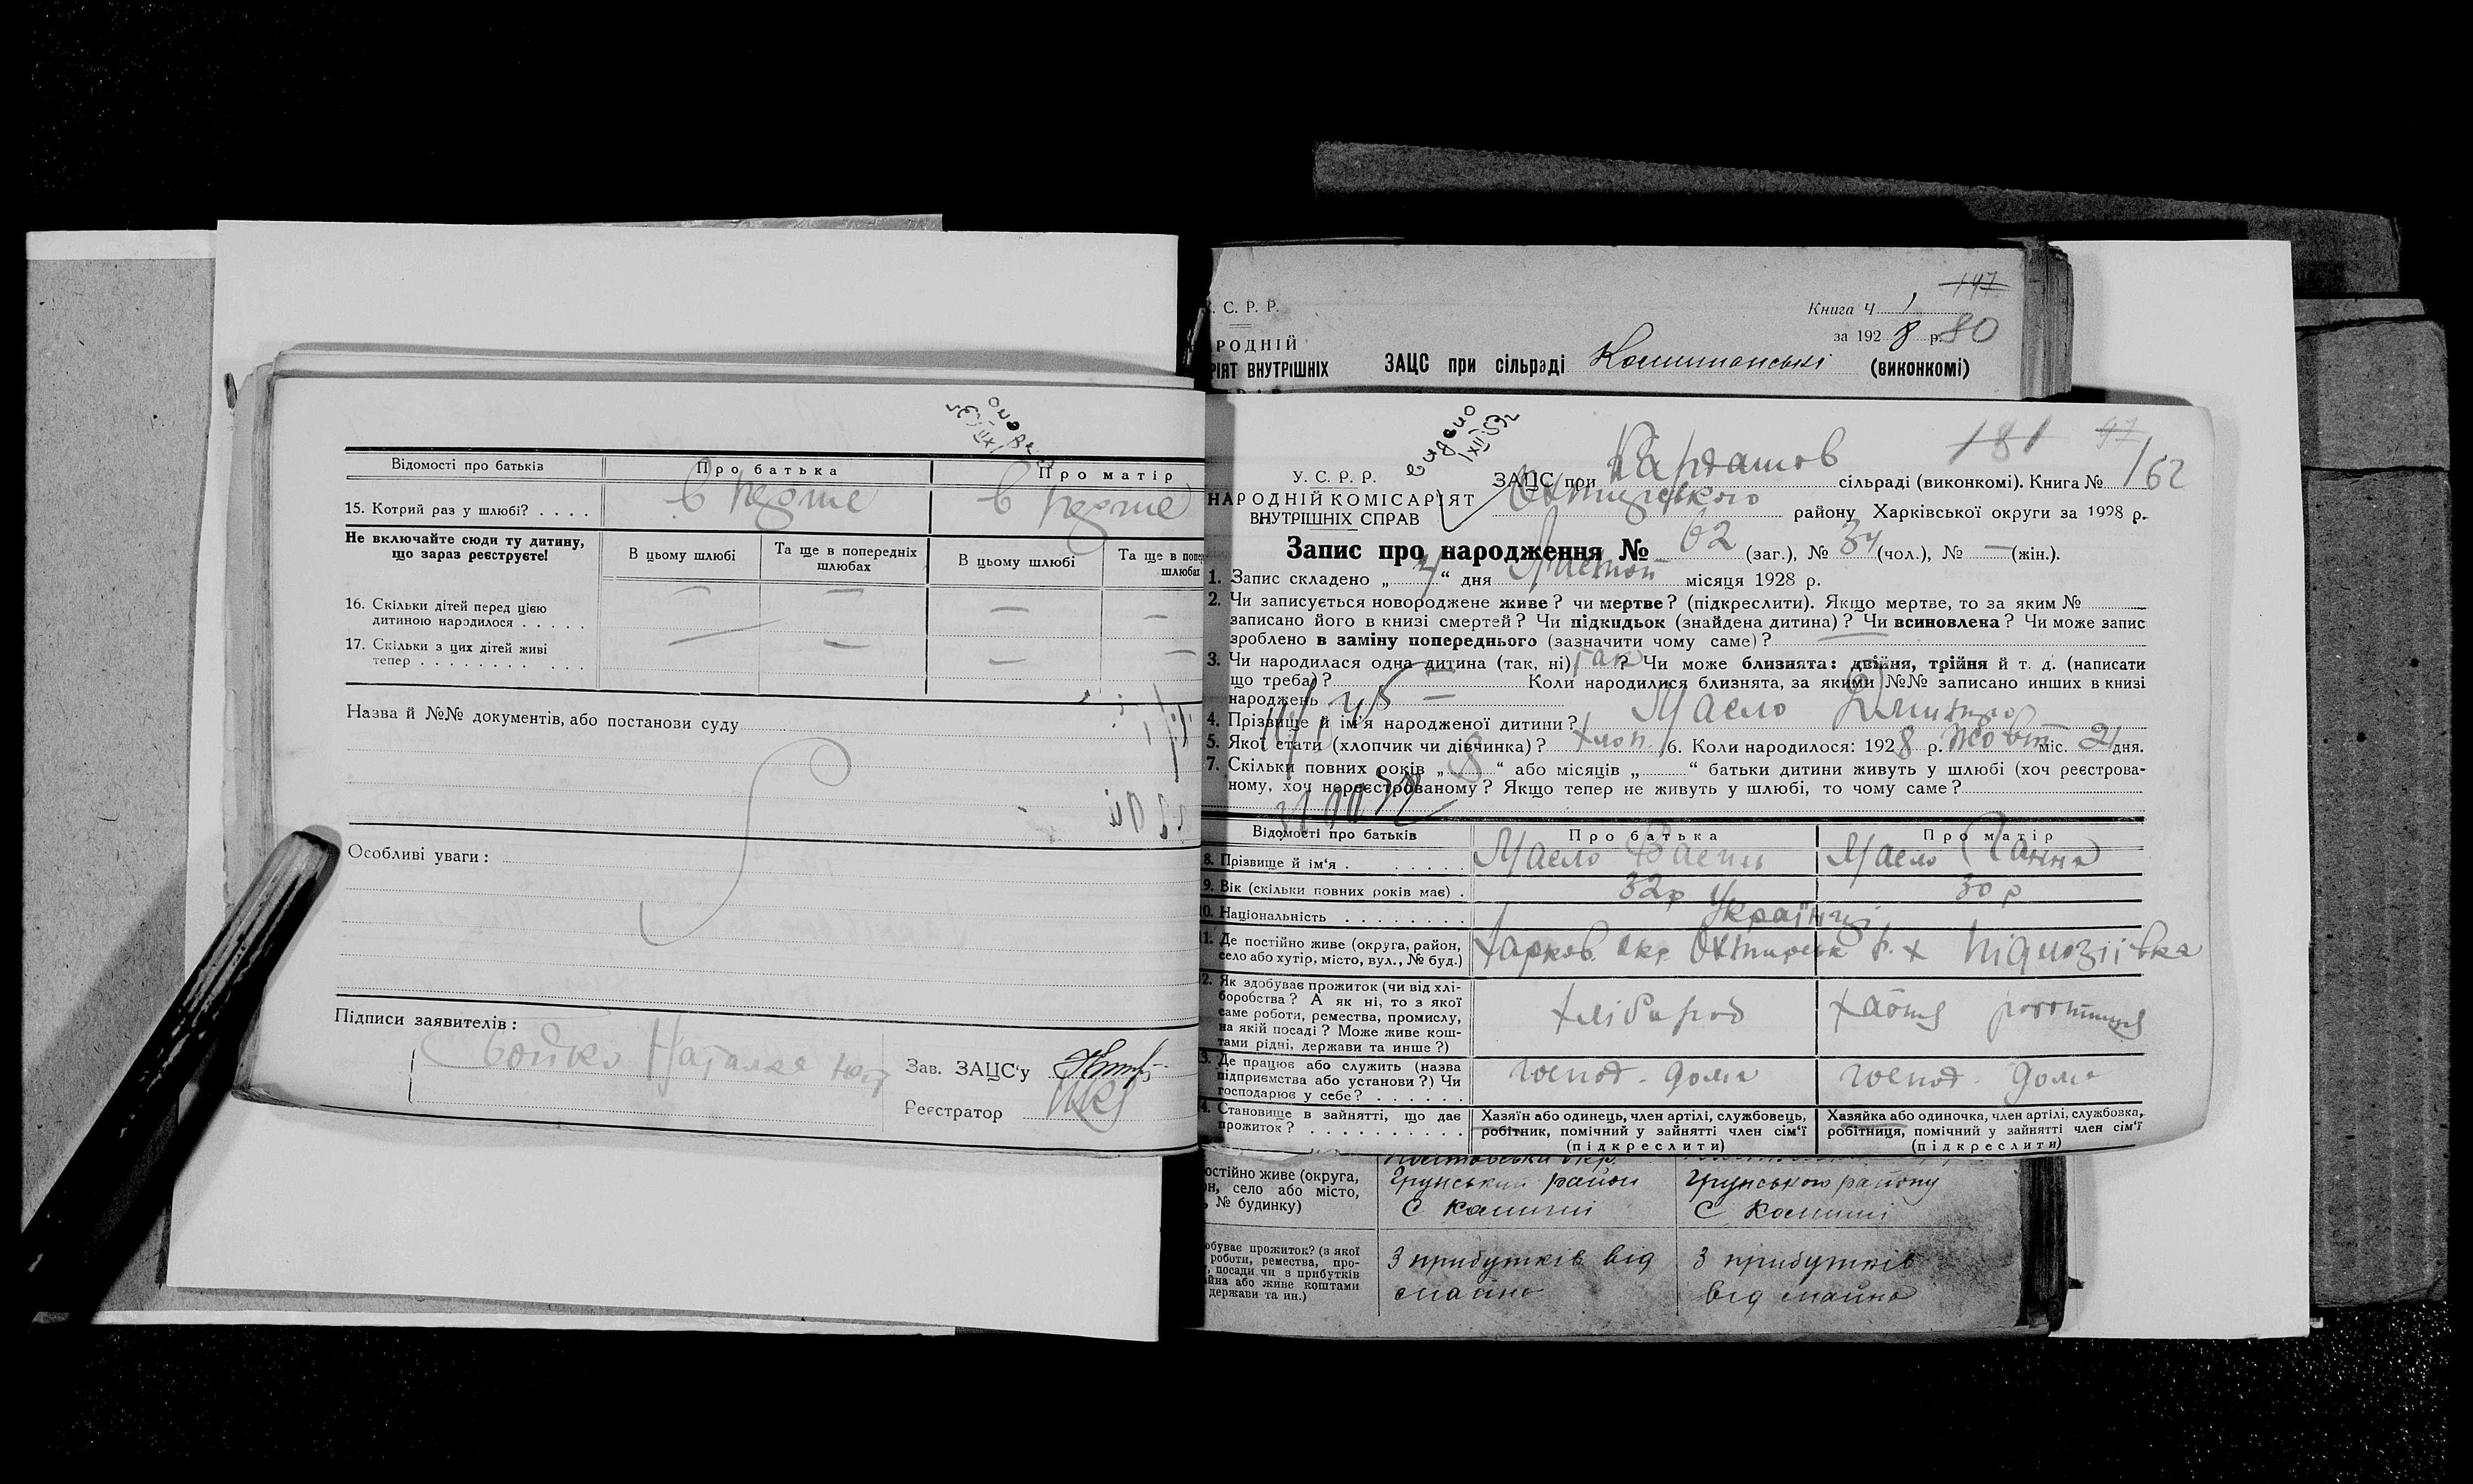 видано
Відомості про батьків Про батька Про матір
15. Котрий раз у шлюбі? . . . . в перше в перше
Не включайте сюди ту дитину, що зараз реєструєте!
В цьому шлюбі Та ще в попередніх шлюбах В цьому шлюбі Та ще в попер шлюбах
16. Скільки дітей перед цією дитиною народилося . . . . . — — — —
17. Скільки з цих дітей живі тепер . . . . . . . . . . . — — — —
Назва й №№ документів, або постанови суду
Особливі уваги:
Підписи заявителів:
Бойко Наталка
Зав. ЗАЦС'у
Реєстратор
. С. Р. Р.
Книга Ч 1
147
РОДНІЙ
за 1928 р. 80
РІЯТ ВНУТРІШНІХ ЗАЦС при сільраді (виконкомі)
видано
181 97
У. С. Р. Р. ЗАЦС при Кардашов сільраді (виконкомі). Книга № 162
НАРОДНІЙ КОМІСАРІЯТ
ВНУТРІШНІХ СПРАВ Охтирського району Харківської округи за 1928 р.
Запис про народження № 62 (заг.), № 34 (чол.), № — (жін.).
1. Запис складено „ “ дня Листоп місяця 1928 р.
2. Чи записується новороджене живе? чи мертве? (підкреслити). Якщо мертве, то за яким №
записано його в книзі смертей? Чи підкидьок (знайдена дитина)? Чи всиновлена? Чи може запис
зроблено в заміну попереднього (зазначити чому саме)?
3. Чи народилася одна дитина (так, ні) так? Чи може близнята: двійня, трійня й т. д. (написати
що треба)? — Коли народилися близнята, за якими №№ записано инших в книзі
народжень —
4. Прізвище й ім'я народженої дитини? Масло Дмитро
5. Якої стати (хлопчик чи дівчинка)? хлоп. 6. Коли народилося: 1928 р. жовт міс. 21 дня.
7. Скільки повних років „ 8 “ або місяців „ “ батьки дитини живуть у шлюбі (хоч реєстрова-
ному, хоч нереєстрованому? Якщо тепер не живуть у шлюбі, то чому саме?
Відомості про батьків Про батька Про матір
8. Прізвище й ім'я . . . . . . Масло Василь Масло Ганна
9. Вік (скільки повних років має) . 32 р 30 р
10. Національність . . . . . . . . Українці
11. Де постійно живе (округа, район,
село або хутір, місто, вул., № буд.) Харков. окр. Охтирськ р. х Підлозіївка
12. Як здобуває прожиток (чи від хлі-
боробства? А як ні, то з якої
саме роботи, ремества, промислу,
на якій посаді? Може живе кош-
тами рідні, держави та инше?) хлібороб хатня робітниця
13. Де працює або служить (назва
підприємства або установи?) Чи
господарює у себе? . . . . . . господ. дома господ. дома
14. Становище в зайнятті, що дає
прожиток? . . . . . . . . . .
Хазяїн або одинець, член артілі, службовець,
робітник, помічний у зайнятті член сім'ї
(підкреслити)
Хазяйка або одиночка, член артілі, службовка,
робітниця, помічний у зайнятті член сім'ї
(підкреслити)
остійно живе (округа,
он, село або місто,
, № будинку)
Грунський район
С Комиші
Грунського району
С Комиші
обуває прожиток? (з якої
роботи, ремества, про-
, посади чи з прибутків
айна або живе коштами
держави та ин.)
З прибутків від
майна
З прибутків
від майна